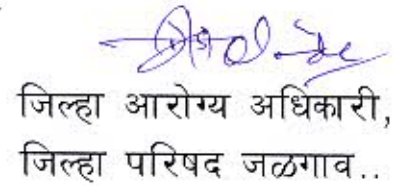 जिल्हा आरोग्य अधिकारी,
जिल्हा परिषद जळगाव..